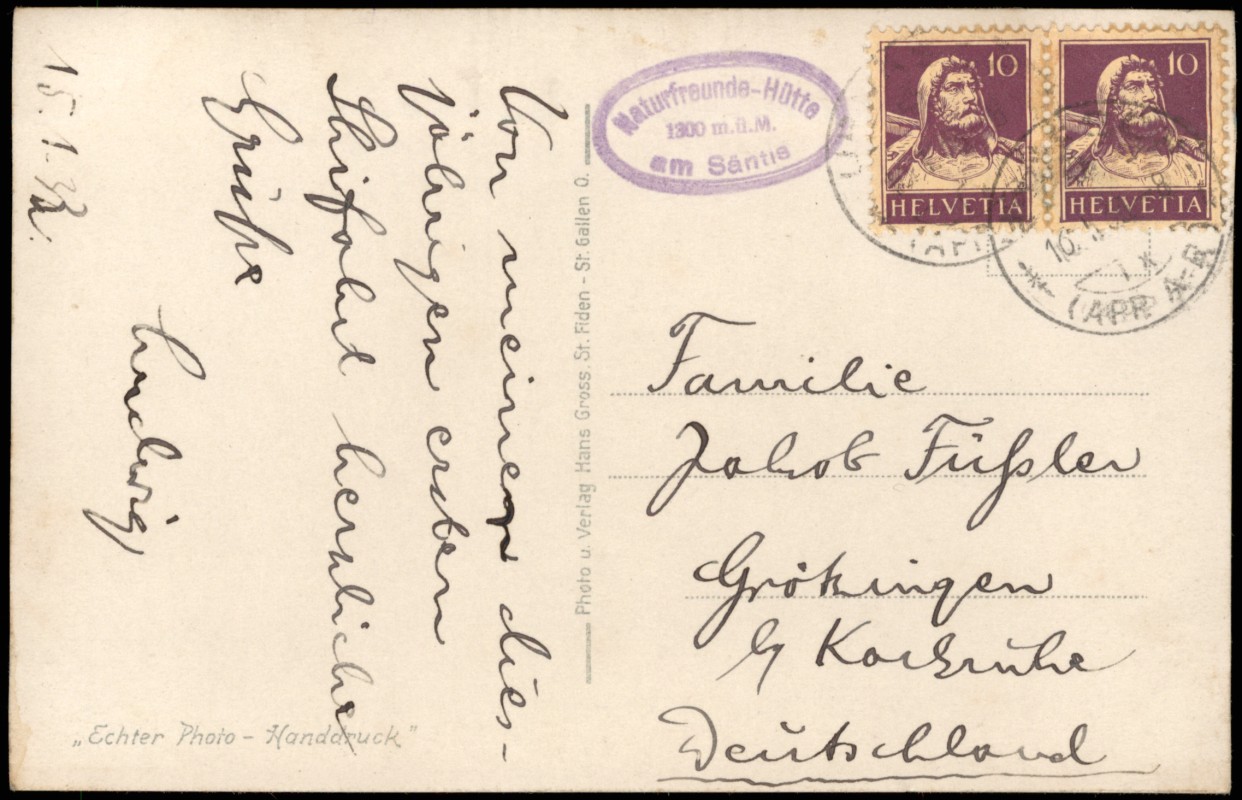 15.1.32.
Von meiner dies-
jährigen ersten
Skifahrt herzliche
Grüße
Ludwig
„Echter Photo - Handdruck"
Photo u. Verlag Hans Gross, St. Fiden - St. Gallen O.
Naturfreunde-Hütte
1300 m.ü.M.
am Säntis
10
HELVETIA
10
HELVETIA
(APP
(APP. A-R)
Familie
Jakob Füßler
Grötzingen
b/ Karlsruhe
Deutschland